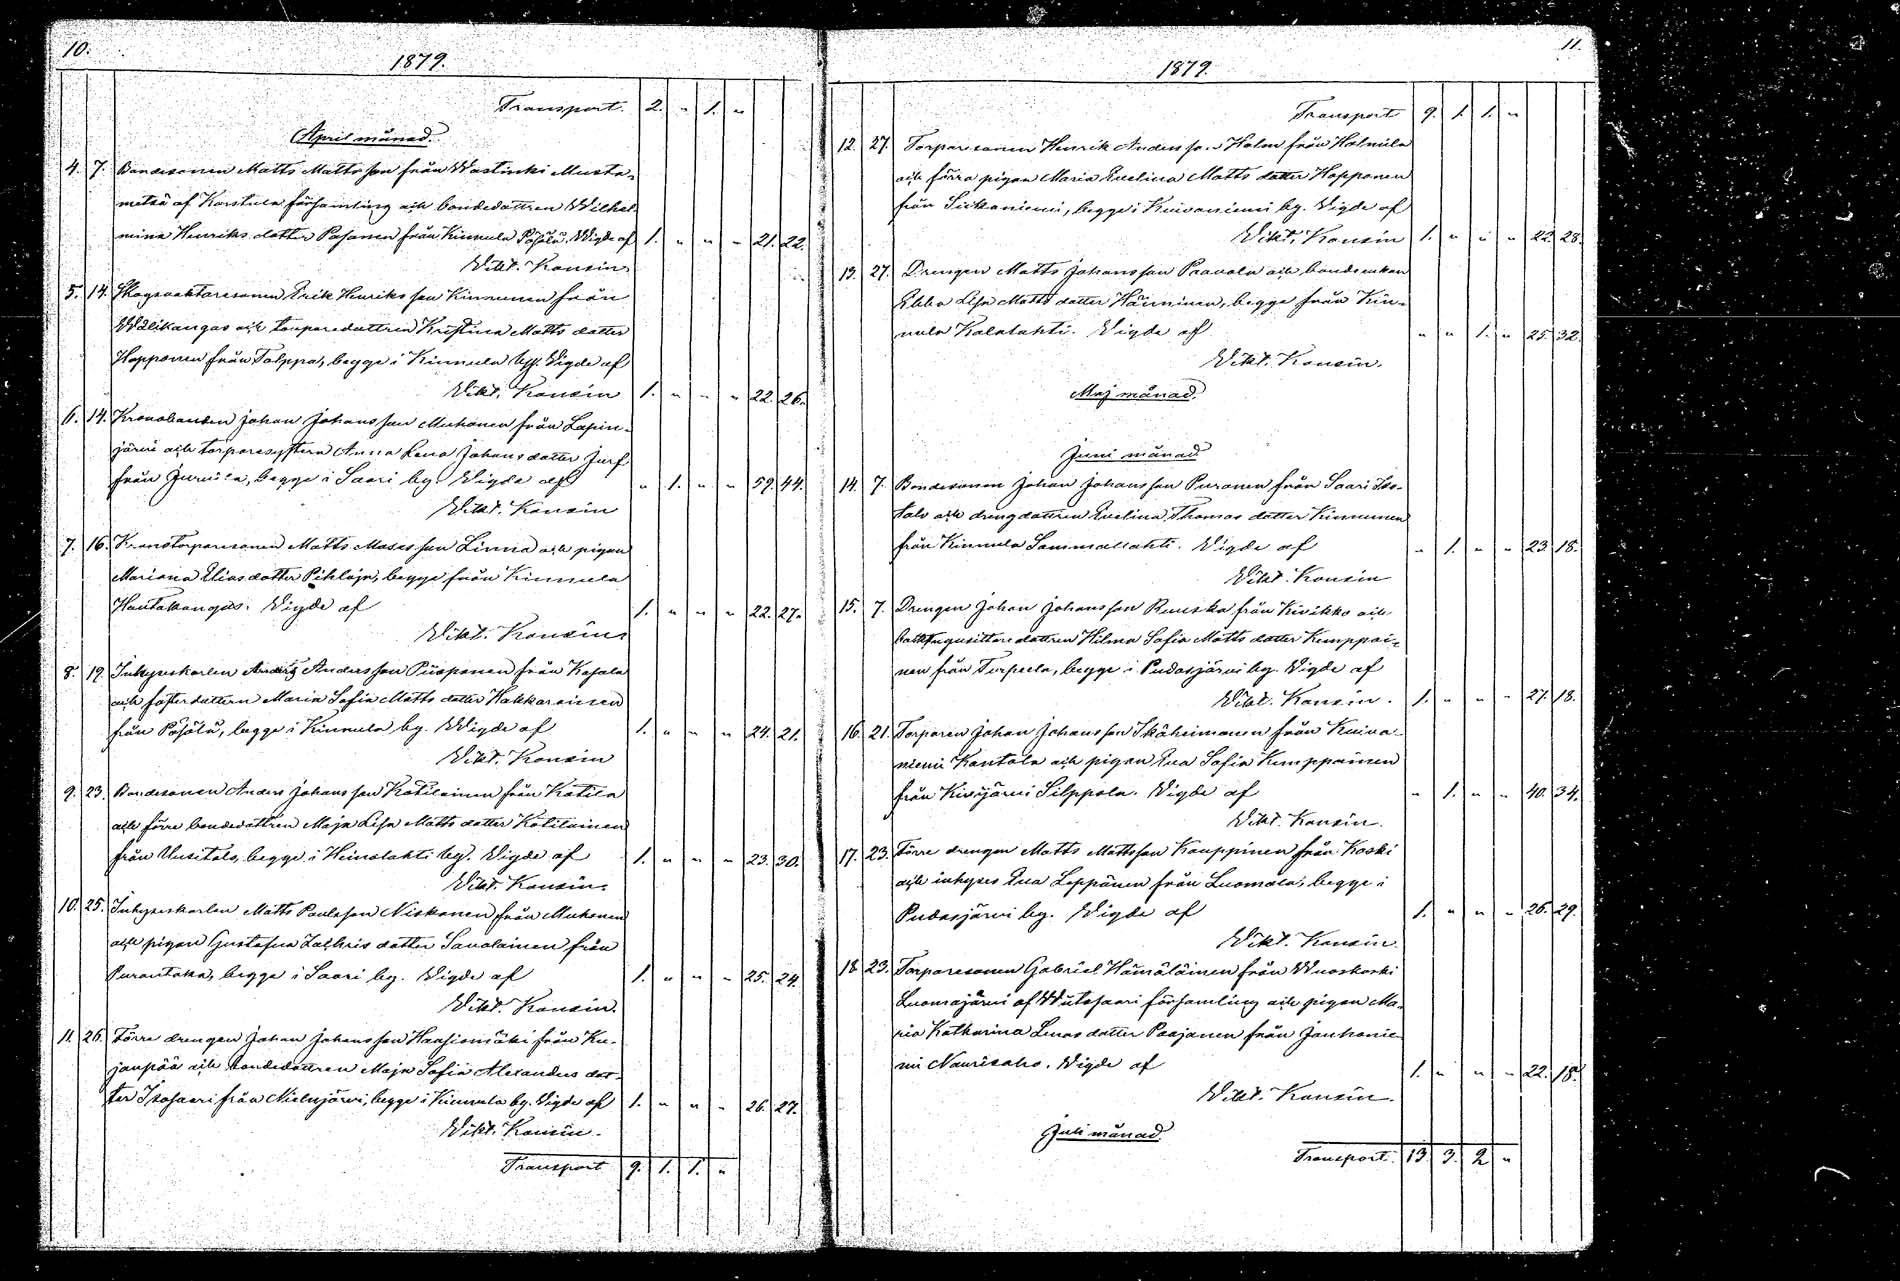 10.
1879.
Transport. 2. " 1. "
April månad.
4. 7. Bondesonen Matts Mattsson från Wastinki Musta-
metsä af Karstula församling och bondedottren Wilhel-
mina Henriksdotter Pasanen från Kinnula Pajala. Wigde af 1. " " " 21. 22.
Wikt. Konsin.
5. 14. Skogvaktaresonen Erik Henriksson Kinnunen från
Wälikangas och torparedottren Kristina Mattsdotter
Hopponen från Talppa, begge i Kinnula by. Wigde af
Wikt. Konsin 1. " " " 22. 26.
6. 14. Kronobonden Johan Johansson Muhonen från Lapin-
järvi och torparesystern Anna Lena Johansdotter Jurf
från Jurvila, begge i Saari by. Wigde af " 1. " " 59. 44.
Wikt. Konsin
7. 16. Kronotorparesonen Matts Mosesson Linna och pigan
Mariana Eliasdotter Pihlaja, begge från Kinnula
Hautakangas. Wigde af 1. " " " 22. 27.
Wikt. Konsin
8. 19. Inhyseskarlen Anders Andersson Piispanen från Kajala
och fosterdottern Maria Sofia Mattsdotter Hakkarainen
från Päjälä, begge i Kinnula by. Wigde af 1. " " " 24. 21.
Wikt. Konsin
9. 23. Bondesonen Anders Johansson Kotilainen från Kotila
och förre bondedottren Maja Lisa Mattsdotter Kotilainen
från Uusitalo, begge i Heinolahti by. Wigde af 1. " " " 23. 30.
Wikt. Konsin.
10. 25. Inhyseskarlen Matts Paulsson Niskanen från Muhonen
och pigan Gustafva Zachrisdotter Savolainen från
Purontaka, begge i Saari by. Wigde af 1. " " " 25. 24.
Wikt. Konsin.
11. 26. Förra drengen Johan Johansson Haasiomäki från Ku-
janpää och bondedottren Maja Sofia Alexandersdot-
ter Isosaari från Nielujärvi, begge i Kinnula by. Wigde af 1. " " " 26. 27.
Wikt. Konsin.
Transport 9. 1. 1. "
11.
1879.
Transport 9. 1. 1. "
12. 27. Torparesonen Henrik Andersson Holm från Holmila
och förra pigan Maria Evelina Mattsdotter Hopponen
från Siikaniemi, begge i Kuivaniemi by. Wigde af
Wikt. Konsin 1. " " " 22. 28.
13. 27. Drengen Matts Johansson Paavola och bondeenkan
Ebba Lisa Mattsdotter Häiminen, begge från Kin-
nula Kalalahti. Wigde af " " 1. " 25. 32.
Wikt. Konsin.
Maj månad.
Juni månad
14. 7. Bondesonen Johan Johansson Puranen från Saari Iso-
talo och drengdottren Evelina Thomasdotter Kinnunen
från Kinnula Sammallahti. Wigde af " 1. " " 23. 18.
Wikt. Konsin
15. 7. Drengen Johan Johansson Ruuska från Kivikko och
backstugusittaredottren Hilma Sofia Mattsdotter Kemppai-
nen från Turpeela, begge i Pudasjärvi by. Wigde af
Wikt. Konsin. 1. " " " 27. 18.
16. 21. Torparen Johan Johansson Ikäheimonen från Kuiva-
niemi Kantola och pigan Eva Sofia Kemppainen
från Kivijärvi Silppola. Wigde af " 1. " " 40. 34.
Wikt. Konsin.
17. 23. Förre drengen Matts Mattsson Kauppinen från Koski
och inhyses Eva Leppänen från Luomala, begge i
Pudasjärvi by. Wigde af 1. " " " 26. 29.
Wikt. Konsin.
18 23. Torparesonen Gabriel Hämäläinen från Wuoskoski
Luomajärvi af Wiitasaari församling och pigan Ma-
ria Katharina Lenasdotter Paajanen från Jauhonie-
mi Naurisaho. Wigde af 1. " " " 22. 18.
Wikt. Konsin.
Juli månad.
Transport. 13 3. 2 "